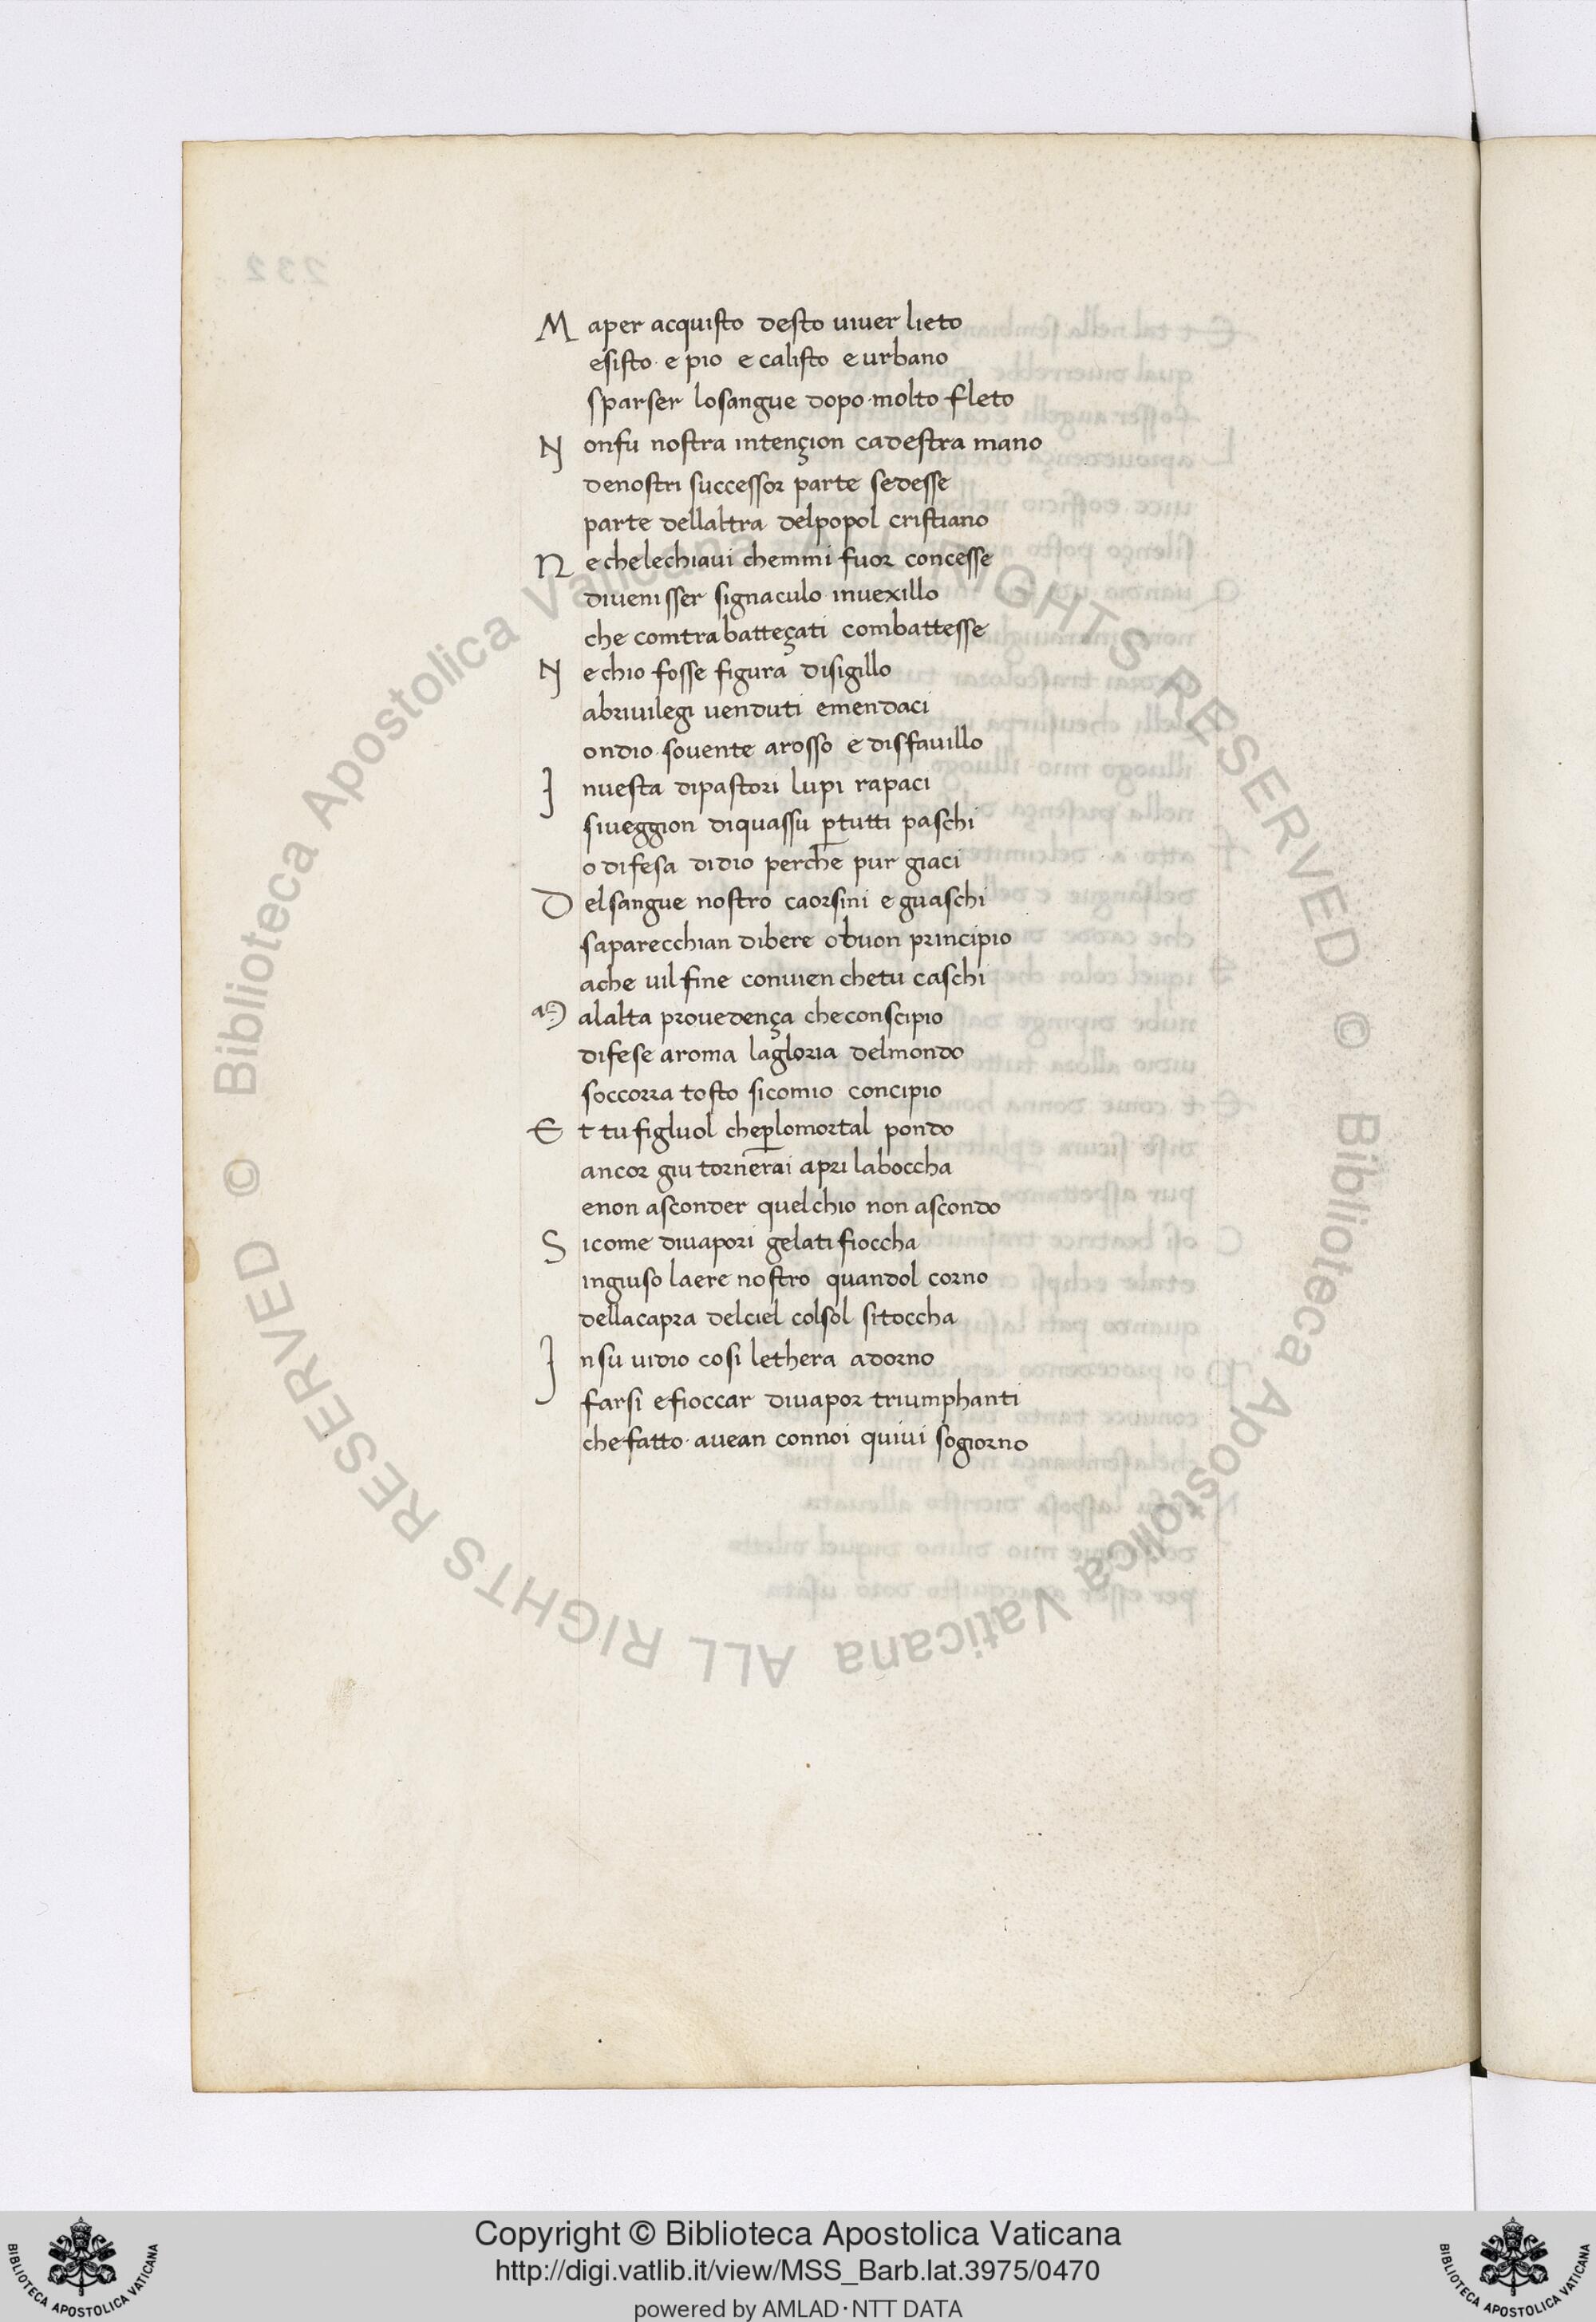 M aper acquisto desto uiuer lieto
esisto e pio e calisto e urbano
sparser losangue dopo molto fleto
N onfu nostra intençion cadestra mano
denostri successor parte sedesse
parte dellaltra delpopol cristiano
N e chelechiaui chemmi fuor concesse
diuenisser signaculo inuexillo
che comtra batteçati combattesse
N e chio fosse figura disigillo
abriuilegi uenduti emendaci
ondio souente arosso e disfauillo
I nuesta dipastori lupi rapaci
siueggion diquassu p̱tutti paschi
o difesa didio perche pur giaci
D elsangue nostro caorsini e guaschi
saparecchian dibere obuon principio
ache uil fine conuien chetu caschi
M alalta prouedença checonscipio
difese aroma lagloria delmondo
soccorra tosto sicomio concipio
E t tu figluol chep̱lomortal pondo
ancor giu tornerai apri laboccha
enon asconder quelchio non ascondo
S icome diuapori gelati fioccha
ingiuso laere nostro quandol corno
dellacapra delciel colsol sitoccha
I nsu uidio cosi lethera adorno
farsi efioccar diuapor triumphanti
chefatto auean connoi quiui sogiorno
232
© Biblioteca Apostolica Vaticana ALL RIGHTS RESERVED © Biblioteca Apostolica Vaticana ALL RIGHTS RESERVED
BIBLIOTECA APOSTOLICA VATICANA
Copyright © Biblioteca Apostolica Vaticana
http://digi.vatlib.it/view/MSS_Barb.lat.3975/0470
powered by AMLAD·NTT DATA
BIBLIOTECA APOSTOLICA VATICANA